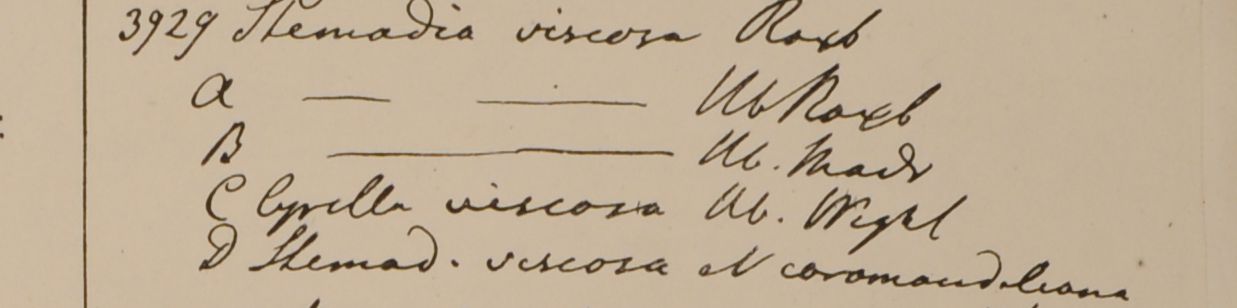 3929 Stemadia viscosa Roxb
a — — Hb Roxb
B — Hb. Madr
C Cyrilla viscosa Hb. Wight
D Stemad. viscosa et coromandeliana